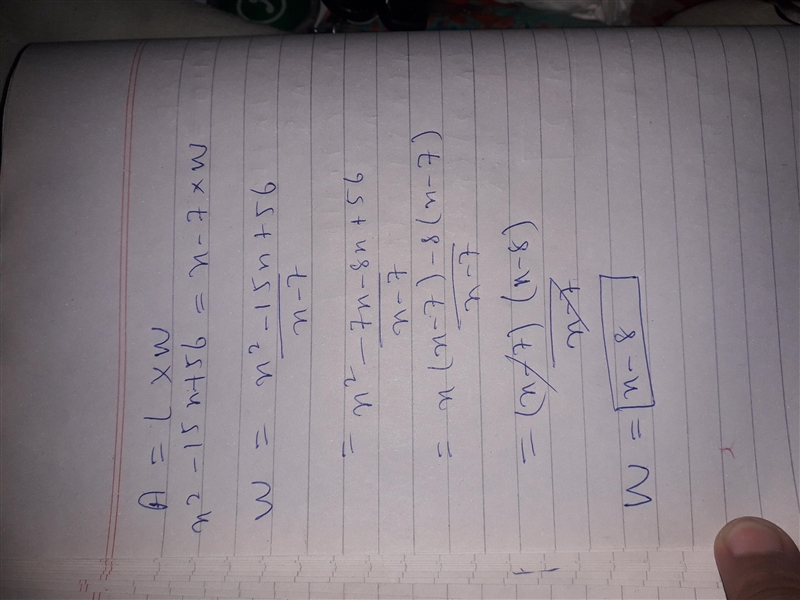 A = L × W
x² - 15x + 56 = x - 7 × W
W = x² - 15x + 56
x - 7
= x² - 7x - 8x + 56
x - 7
= x(x - 7) - 8(x - 7)
x - 7
= (x - 7) (x - 8)
x - 7
W = x - 8